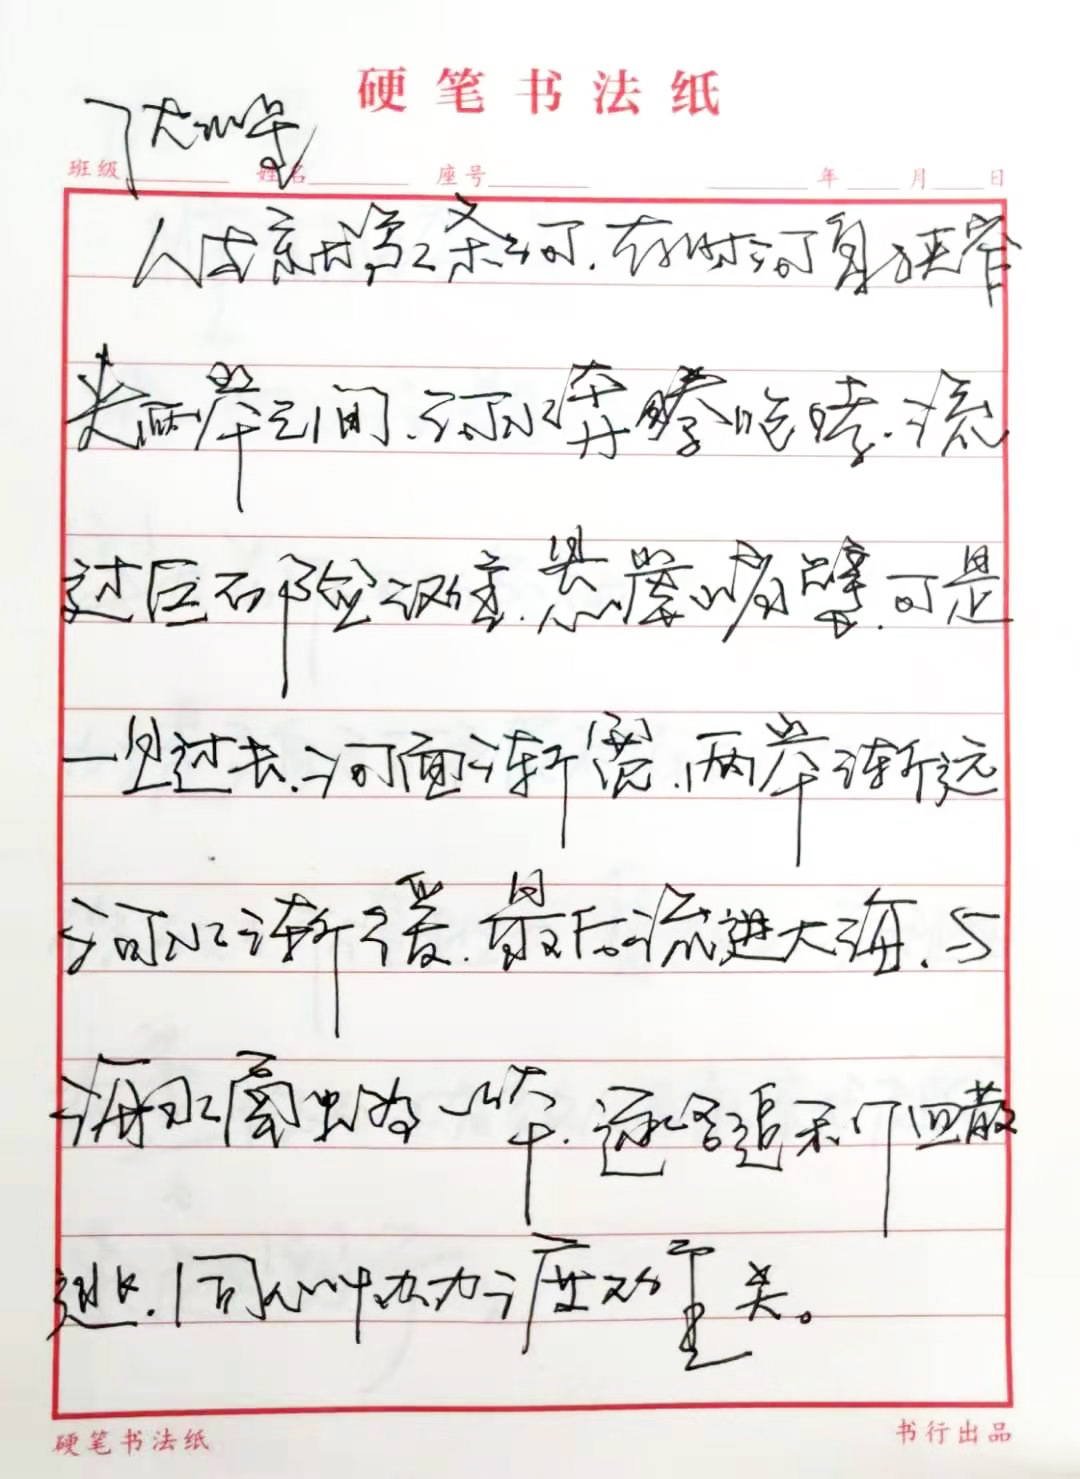 硬笔书法纸
班级 姓名 座号 年 月 日
人生就像一条河.有时河身狭窄
夹两岸之间.河水奔腾咆哮.流
过巨石险滩.悬崖峭壁.可是
一旦过去.河面渐宽.两岸渐远
河水渐缓.最后流进大海.与
海水融为一体.逐
同心协力渡难关。
硬笔书法纸
书行出品